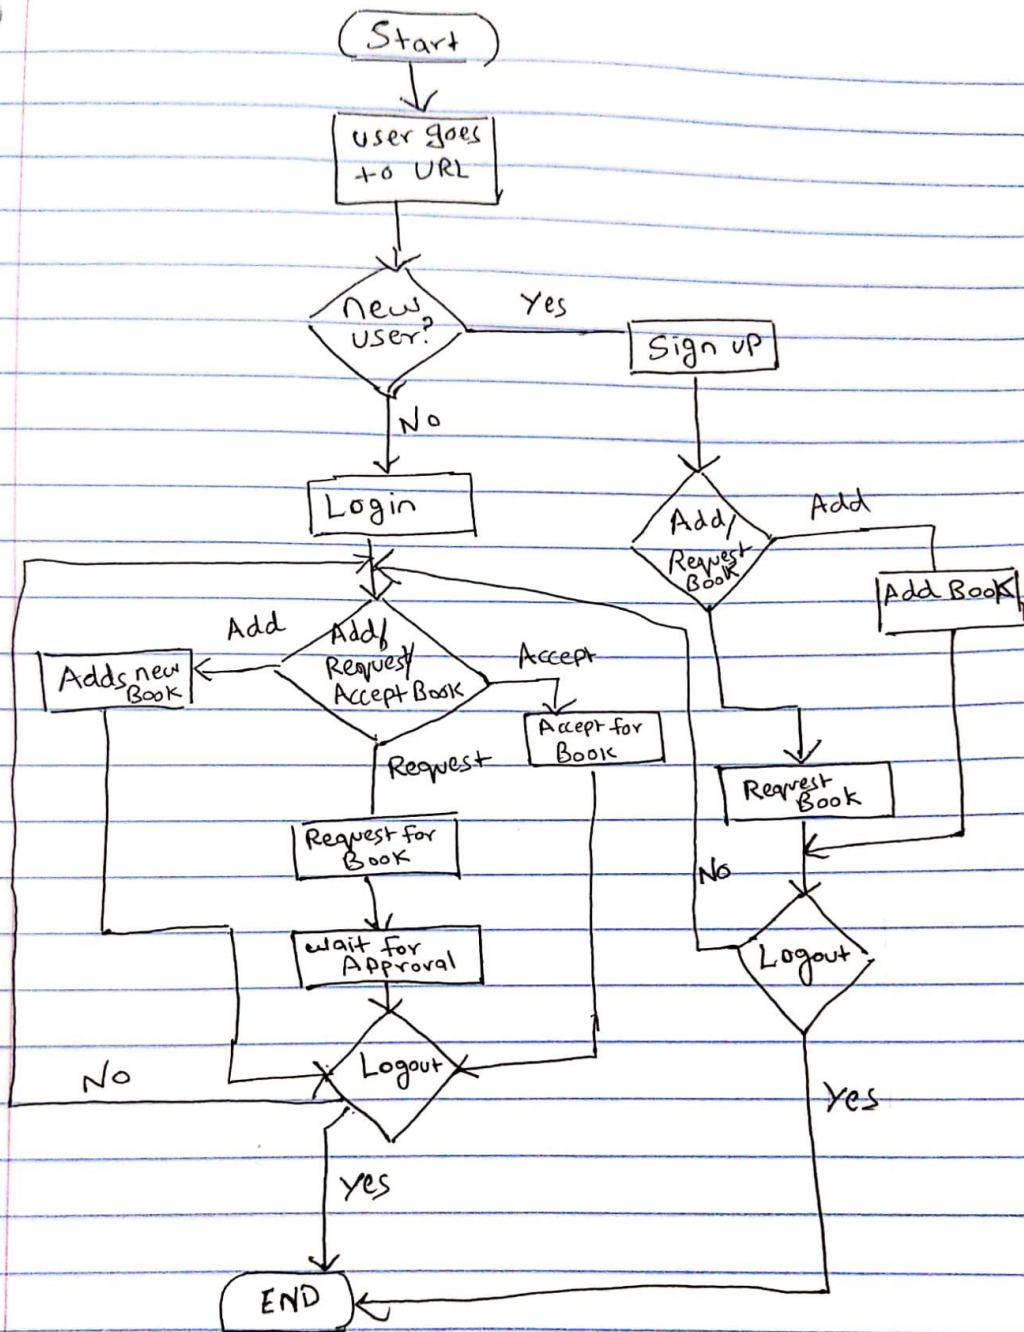 Start
user goes
to URL
new
user?
Yes
Sign up
No
Login
Add/
Request
Book
Add
Add Book
Add
Add/
Request/
Accept Book
Accept
Adds new
Book
Accept for
Book
Request
Request
Book
Request for
Book
No
wait for
Approval
Logout
Logout
No
Yes
Yes
END